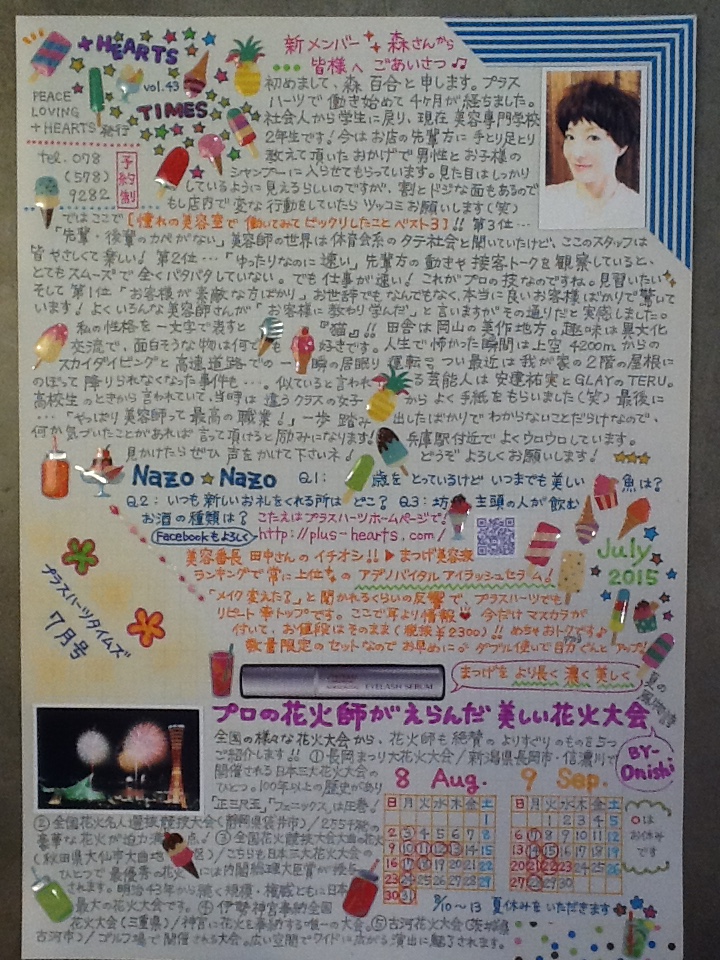 +HEARTS
vol.43
TIMES
PEACE
LOVING
+HEARTS発行
tel.078
(578)
9282
予約制
新メンバー 森さんから
皆様へ ごあいさつ♫
初めまして、森 百合と申します。プラス
ハーツで働き始めて4ヶ月が経ちました。
社会人から学生に戻り、現在 美容専門学校
2年生です!今はお店の先輩方に手とり足とり
教えて頂いたおかげで男性とお子様の
シャンプーに入らせてもらっています。見た目はしっかり
しているように見えるらしいのですが、割とドジな面もあるので
もし店内で変な行動をしていたらツッコミお願いします(笑)
ではここで【憧れの美容室で働いてみてビックリしたことベスト3】!! 第3位…
「先輩・後輩のカベがない」美容師の世界は体育会系のタテ社会と聞いていたけど、ここのスタッフは
皆やさしくて楽しい!第2位…「ゆったりなのに速い」先輩方の動きや接客トークを観察していると、
とてもスムーズで全くバタバタしていない。でも仕事が速い!これがプロの技なのですね。見習いたい
そして第1位「お客様が素敵な方ばかり」お世辞でもなんでもなく、本当に良いお客様ばかりで驚いて
います!よくいろんな美容師さんが「お客様に教わり学んだ」と言いますがその通りだと実感しました。
私の性格を一文字で表すと『猫』!! 田舎は岡山の美作地方。趣味は異文化
交流で、面白そうな物は何でも好きです。人生で怖かった瞬間は上空4200mからの
スカイダイビングと高速道路での一瞬の居眠り運転。つい最近は我が家の2階の屋根に
のぼって降りられなくなった事件も…。似ていると言われる芸能人は安達祐実とGLAYのTERU。
高校生のときから言われていて、当時は違うクラスの女子からよく手紙をもらいました(笑)最後に
…「やっぱり美容師って最高の職業!」一歩踏み出したばかりでわからないことだらけなので、
何か気づいたことがあれば言って頂けると励みになります!兵庫駅付近でよくウロウロしています。
見かけたらぜひ声をかけて下さいネ! どうぞよろしくお願いします!
Nazo★Nazo Q1: 歳をとっているけどいつまでも美しい魚は?
Q2: いつも新しいお札をくれる所はどこ? Q3: 坊主頭の人が飲む
お酒の種類は? こたえはプラスハーツホームページで!
Facebookもよろしく http://plus-hearts.com/
美容番長 田中さんのイチオシ!!▶まつげ美容液
ランキングで常に上位の アデノバイタル アイラッシュセラム!
「メイク変えた?」と聞かれるくらいの反響で、プラスハーツでも
リピート率トップです。ここで耳より情報 今だけマスカラが
付いて、お値段はそのまま(税抜¥2300)!! めちゃおトクです♪
数量限定のセットなのでお早めに。ダブル使いで目力ぐんとアップ!!
July
2015
プラスハーツタイムズ
7月号
EYELASH SERUM
まつげを より長く 濃く 美しく
夏の風物詩
プロの花火師がえらんだ 美しい花火大会
BY-
Onishi
全国の様々な花火大会から、花火師も絶賛のよりすぐりのものを5つ
ご紹介します!! ①長岡まつり大花火大会/新潟県長岡市・信濃川で
開催される日本三大花火大会の
ひとつ。100年以上の歴史があり
「正三尺玉」「フェニックス」は圧巻!
②全国花火名人選抜競技大会(静岡県袋井市)/2万5千発の
豪華な花火が迫力満点!③全国花火競技大会大曲の花火
(秋田県大仙市大曲地区)/こちらも日本三大花火大会の
ひとつで最優秀の花火には内閣総理大臣賞が授与
されます。明治43年から続く規模・権威ともに日本
最大の花火大会です。④伊勢神宮奉納全国
花火大会(三重県)/神宮に花火を奉納する唯一の大会。⑤古河花火大会(茨城県
古河市)/ゴルフ場で開催される大会。広い空間でワイドに広がる演出に魅了されます。
8 Aug.
日月火水木金土
1
2 3 4 5 6 7 8
9 10 11 12 13 14 15
16 17 18 19 20 21 22
23 24 25 26 27 28 29
30 31
9 Sep.
日月火水木金土
1 2 3 4 5
6 7 8 9 10 11 12
13 14 15 16 17 18 19
20 21 22 23 24 25 26
27 28 29 30
○は
お休み
です
8/10~13 夏休みをいただきます